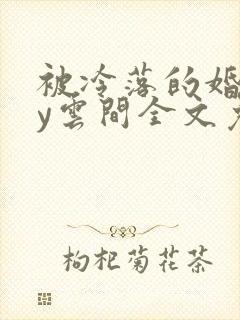 被冷落的婚
y雲間全文
枸杞菊花茶